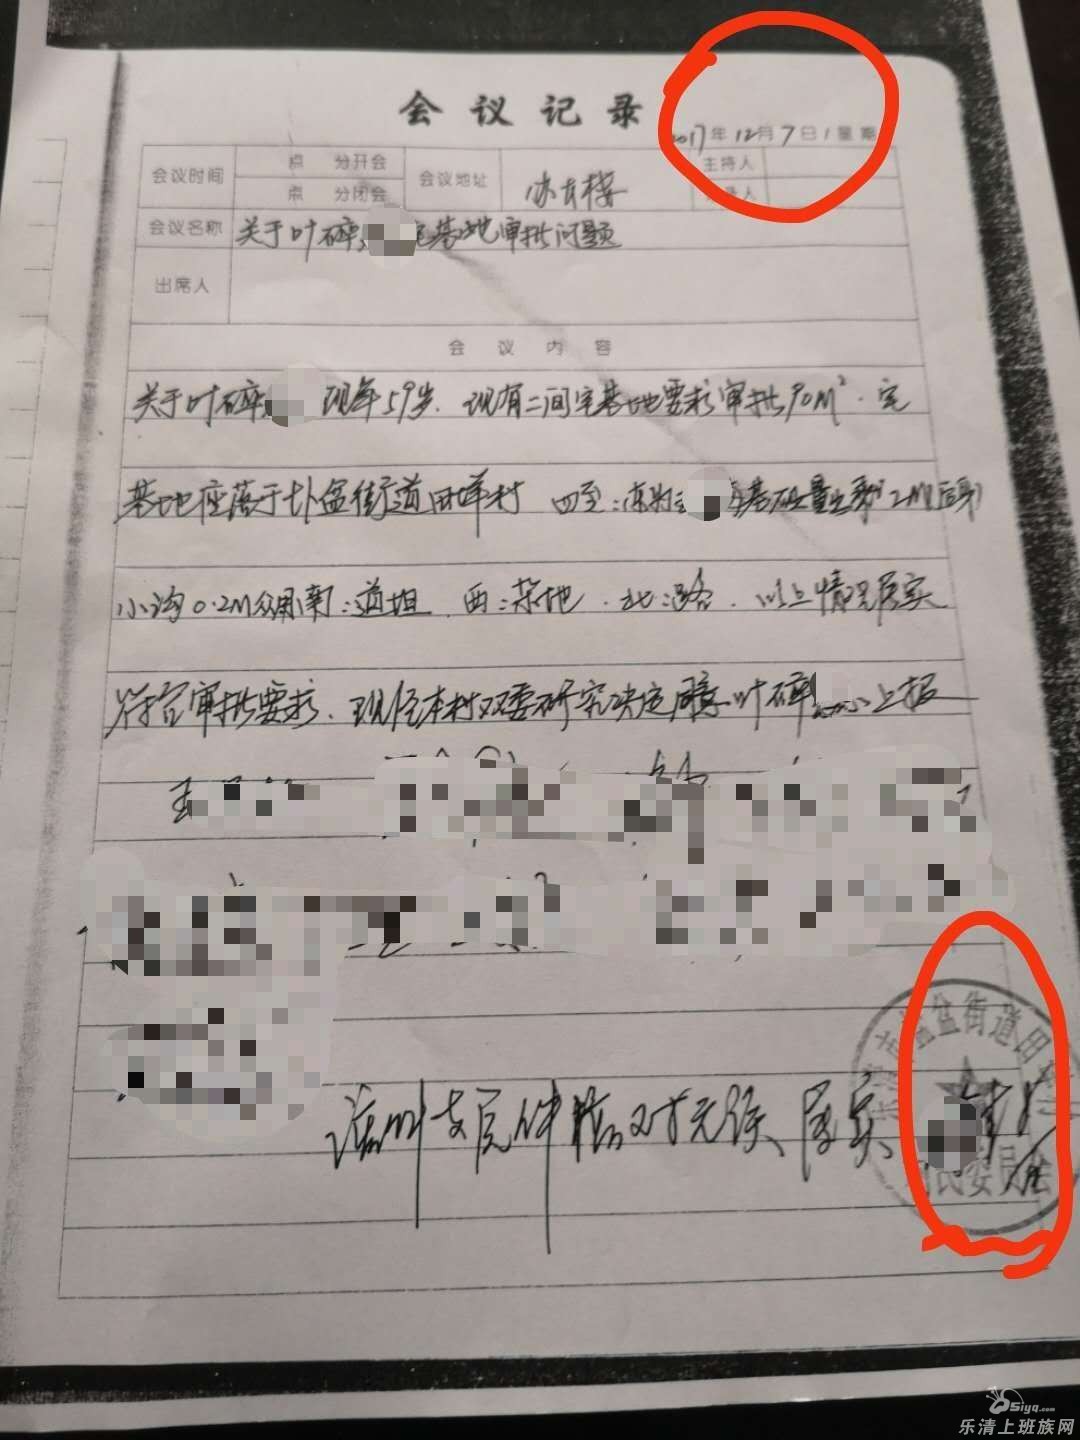 会议记录
2017年12月7日 星期
会议时间 点 分开会 会议地址 主持人
点 分闭会 办公楼 记录人
会议名称 关于叶碎 宅基地审批问题
出席人
会议内容
关于叶碎 现年59岁.现有二间宅基地要求审批90M².宅
基地座落于 盆街道田垟村 四至:东为 基础 2M
小沟0.2M众用南:道坦.西:菜地.北:路.以上情况属实
符合审批要求.现经本村双委研究决定同意叶碎 上报
王
该叫支原件核对无误、属实
盆街道田
村民委员会
siyq.com
乐清上班族网